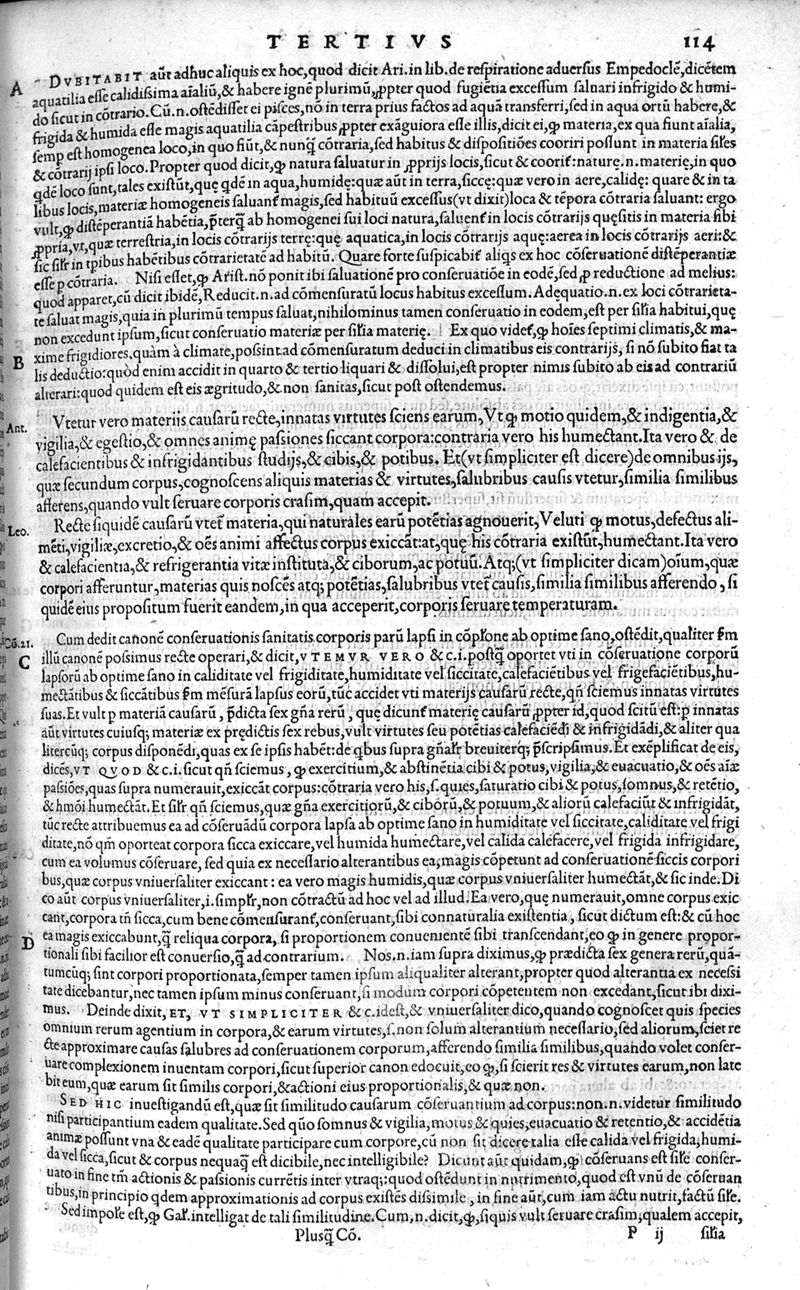 TERTIVS 114
A DVBITABIT aūt adhuc aliquis ex hoc, quod dicit Ari. in lib. de respiratione aduersus Empedoclē, dicētem
aquatilia esse calidissima aīaliū, & habere ignē plurimū, ꝓpter quod fugiētia excessum saluari in frigido & humi-
do sicut in cōtrario. Cū. n. ostēdisset ei pisces, nō in terra prius factos ad aquā transferri, sed in aqua ortū habere, &
frigida & humida esse magis aquatilia cāpestribus ꝓpter exāguiora esse illis, dicit ei, ꝙ materia, ex qua fiunt aīalia,
semp est homogenea loco, in quo fiūt, & nunq̄ cōtraria, sed habitus & dispositiōes cooriri possunt in materia siles
& cōtrarij ipsi loco. Propter quod dicit, ꝙ natura saluatur in ꝓprijs locis, sicut & coorit: nature. n. materię, in quo
qdē loco sunt, tales existūt, quę qdē in aqua, humidę: quæ aūt in terra, siccę: quæ vero in aere, calidę: quare & in ta
libus locis, materiæ homogeneis saluant magis, sed habituū excessus (vt dixit) loca & tēpora cōtraria saluant: ergo
vult, ꝙ distēperantiā habētia, pterq̄ ab homogenei sui loci natura, saluent in locis cōtrarijs quęsitis in materia sibi
ꝓpria, vt, quæ terrestria, in locis cōtrarijs terrę: quę aquatica, in locis cōtrarijs aquę: aerea in locis cōtrarijs aeri: &
sic silr in tpibus habētibus cōtrarietatē ad habitū. Quare forte suspicabit aliqs ex hoc cōseruatione distēperantiæ
esse p cōtraria. Nisi esset, ꝙ Arist. nō ponit ibi saluationē pro conseruatiōe in eodē, sed p reductione ad melius:
quod apparet, cū dicit ibidē, Reducit. n. ad cōmensuratū locus habitus excessum. Adequatio. n. ex loci cōtrarieta-
te saluat magis, quia in plurimū tempus saluat, nihilominus tamen conseruatio in eodem, est per silia habitui, quę
non excedunt ipsum, sicut conseruatio materiæ per silia materię. Ex quo videt, ꝙ hoīes septimi climatis, & ma-
B xime frigidiores, quàm à climate, possint ad cōmensuratum deduci in climatibus eis contrarijs, si nō subito fiat ta
lis deductio: quòd enim accidit in quarto & tertio liquari & dissolui, est propter nimis subito ab eis ad contrariū
alterari: quod quidem est eis ægritudo, & non sanitas, sicut post ostendemus.
Ant. Vtetur vero materijs causarū recte, innatas virtutes sciens earum, Vt ꝙ motio quidem, & indigentia, &
vigilia, & egestio, & omnes animę passiones siccant corpora: contraria vero his humectant. Ita vero & de
calefacientibus & infrigidantibus studijs, & cibis, & potibus. Et (vt simpliciter est dicere) de omnibus ijs,
quæ secundum corpus, cognoscens aliquis materias & virtutes, salubribus causis vtetur, similia similibus
afferens, quando vult seruare corporis crasim, quam accepit.
Leo. Recte siquidē causarū vtet materia, qui naturales earū potētias agnouerit, Veluti ꝙ motus, defectus ali-
mēti, vigiliæ, excretio, & oēs animi affectus corpus exiccāt: at, quę his cōtraria existūt, humectant. Ita vero
& calefacientia, & refrigerantia vitæ instituta, & ciborum, ac potuū. Atq; (vt simpliciter dicam) oīum, quæ
corpori afferuntur, materias quis noscēs atq; potētias, salubribus vtet causis, similia similibus afferendo, si
quidē eius propositum fuerit eandem, in qua acceperit, corporis seruare temperaturam.
Cō. 21. Cum dedit canonē conseruationis sanitatis corporis parū lapsi in cōplōne ab optime sano, ostēdit, qualiter fm
C illū canonē possimus recte operari, & dicit, VTEMVR VERO & c. i. postq̄ oportet vti in cōseruatione corporū
lapsorū ab optime sano in caliditate vel frigiditate, humiditate vel siccitate, calefaciētibus vel frigefaciētibus, hu-
mectātibus & siccātibus fm mēsurā lapsus eorū, tūc accidet vti materijs causarū recte, qn̄ sciemus innatas virtutes
suas. Et vult p materiā causarū, p̄dicta sex gn̄a rerū, quę dicunt materię causarū ꝓpter id, quod scitū est: p innatas
aūt virtutes cuiusq; materiæ ex prędictis sex rebus, vult virtutes seu potētias calefaciēdi & infrigidādi, & aliter qua
litercūq; corpus disponēdi, quas ex se ipsis habēt: de qbus supra gn̄alr breuiterq; p̄scripsimus. Et exēplificat de eis,
dicēs, VT QVOD & c. i. sicut qn̄ sciemus, ꝙ exercitium, & abstinētia cibi & potus, vigilia, & euacuatio, & oēs aīæ
passiōes, quas supra numerauit, exiccāt corpus: cōtraria vero his, s. quies, saturatio cibi & potus, somnus, & retētio,
& hmōi humectāt. Et silr qn̄ sciemus, quæ gn̄a exercitiorū, & ciborū, & potuum, & aliorū calefaciūt & infrigidāt,
tūc recte attribuemus ea ad cōseruādū corpora lapsa ab optime sano in humiditate vel siccitate, caliditate vel frigi
ditate, nō qm̄ oporteat corpora sicca exiccare, vel humida humectare, vel calida calefacere, vel frigida infrigidare,
cum ea volumus cōseruare, sed quia ex necessario alterantibus ea, magis cōpetunt ad conseruationē siccis corpori
bus, quæ corpus vniuersaliter exiccant: ea vero magis humidis, quæ corpus vniuersaliter humectāt, & sic inde. Di
co aūt corpus vniuersaliter, i. simplr, non cōtractū ad hoc vel ad illud. Ea vero, quę numerauit, omne corpus exic
cant, corpora tn̄ sicca, cum bene cōmensurant, conseruant, sibi connaturalia existentia, sicut dictum est: & cū hoc
D ea magis exiccabunt, q̄ reliqua corpora, si proportionem conuenientē sibi transcendant, eo ꝙ in genere propor-
tionali sibi facilior est conuersio, q̄ ad contrarium. Nos. n. iam supra diximus, ꝙ prædicta sex genera rerū, quā-
tumcūq; sint corpori proportionata, semper tamen ipsum aliqualiter alterant, propter quod alterantia ex necessi
tate dicebantur, nec tamen ipsum minus conseruant, si modum corpori cōpetentem non excedant, sicut ibi dixi-
mus. Deinde dixit, ET, VT SIMPLICITER & c. idest, & vniuersaliter dico, quando cognoscet quis species
omnium rerum agentium in corpora, & earum virtutes, s. non solum alterantium necessario, sed aliorum, sciet re
cte approximare causas salubres ad conseruationem corporum, afferendo similia similibus, quando volet conser-
uare complexionem inuentam corpori, sicut superior canon edocuit, eo ꝙ, si scierit res & virtutes earum, non late
bit eum, quæ earum sit similis corpori, & actioni eius proportionalis, & quæ non.
SED HIC inuestigandū est, quæ sit similitudo causarum cōseruantium ad corpus: non. n. videtur similitudo
nisi participantium eadem qualitate. Sed quō somnus & vigilia, motus & quies, euacuatio & retentio, & accidētia
animæ possunt vna & eadē qualitate participare cum corpore, cū non sit dicere talia esse calida vel frigida, humi-
da vel sicca, sicut & corpus nequaq̄ est dicibile, nec intelligibile? Dicunt aūt quidam, ꝙ cōseruans est sile conser-
uato in fine tm̄ actionis & passionis currētis inter vtraq;: quod ostēdunt in nutrimento, quod est vnū de cōseruan
tibus, in principio qdem approximationis ad corpus existēs dissimile, in fine aūt, cum iam actu nutrit, factū sile.
Sed impole est, ꝙ Gal. intelligat de tali similitudine. Cum. n. dicit, ꝙ, siquis vult seruare crasim, qualem accepit,
Plusq̄ Cō. P ij silia